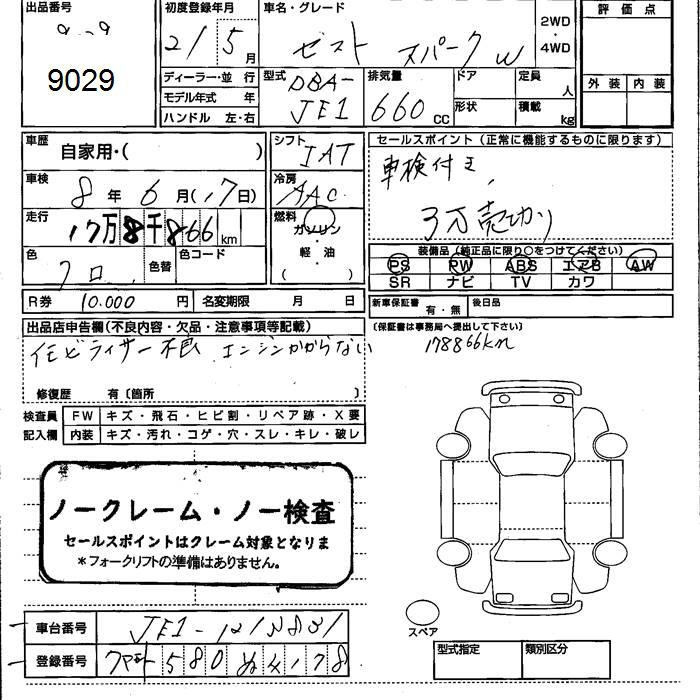 出品番号
9029
初度登録年月
21 5 月
車名・グレード
ゼスト スパーク W
2WD
・
4WD
評価点
外装 内装
ディーラー・並行
モデル年式 年
ハンドル 左・右
型式
DBA-
JE1
排気量
660 CC
ドア
形状
定員
人
積載
kg
車歴
自家用・( )
シフト
IAT
セールスポイント (正常に機能するものに限ります)
車検付き
3万売切り
車検
8 年 6 月(17日)
冷房
AAC
走行
17万8千866 km
燃料
ガソリン
・
軽・油
( )
色
クロ
色替
色コード
装備品 (純正品に限り○をつけてください)
PS PW ABS エアB AW
SR ナビ TV カワ
R券 10.000 円
名変期限 月 日
新車保証書
有・無
後日品
(保証書は事務局へ提出して下さい)
178866km
出品店申告欄(不良内容・欠品・注意事項等記載)
不良 エンジンかからない
修復歴 有〔箇所 〕
検査員
記入欄
FW キズ・飛石・ヒビ割・リペア跡・X要
内装 キズ・汚れ・コゲ・穴・スレ・キレ・破レ
ノークレーム・ノー検査
セールスポイントはクレーム対象となりま
*フォークリフトの準備はありません。
スペア
車台番号 JE1-
登録番号 580 4178
型式指定
類別区分